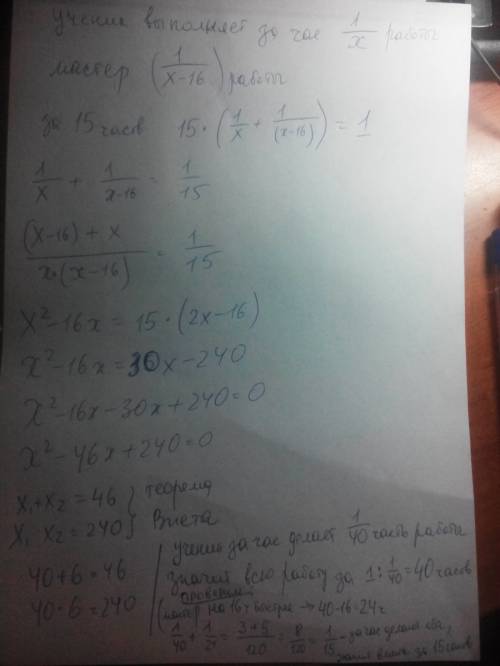 ученик выполняет за час 1/x работы
мастер (1/(x-16)) работы
за 15 часов 15·(1/x + 1/(x-16)) = 1
1/x + 1/(x-16) = 1/15
((x-16)+x)/(x·(x-16)) = 1/15
x²-16x = 15·(2x-16)
x²-16x=30x-240
x²-16x-30x+240=0
x²-46x+240=0
x₁+x₂=46 } теорема
x₁·x₂=240 } Виета
40+6=46
40·6=240
ученик за час делает 1/40 часть работы
значит всю работу за 1:1/40=40 часов
проверим
(мастер) на 16ч быстрее → 40-16=24ч
1/40 + 1/24 = (3+5)/120 = 8/120 = 1/15 - за час делают оба,
вместе за 15 часов